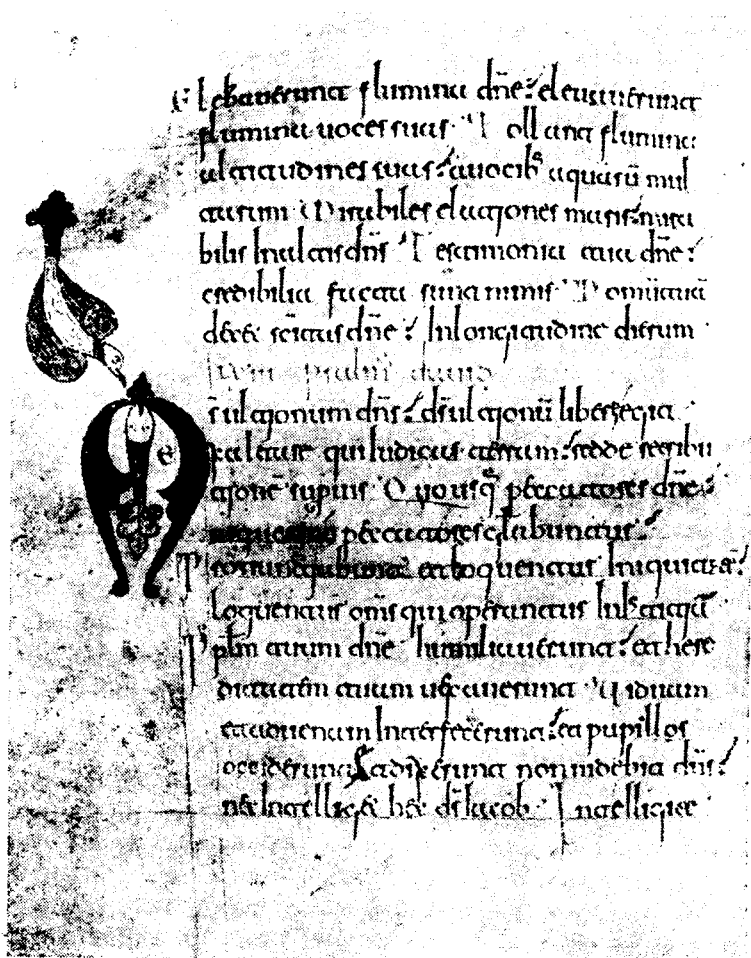 Elebauerunt flumina dñe: eleuauerunt
flumina uoces suas. Tollant flumina
altitudines suas: a uocib; aquarū mul
tarum Mirabiles elationes maris: mira
bilis In altis dñs Testimonia tua dñe:
credibilia facta sunt nimis Domū tuā
decet sc̄itas dñe: In longitudine dierum
Item psalm̄ dauid
s ultionum dñs: ds̄ ultionū libere egit
Exaltare qui Iudicas terram: redde retribu
tionē supuis. Quousq; peccatores dñe:
peccatores głabuntur:
Pronuntiabunt et loquentur Iniquitatē:
Loquentur oms̄ qui operantur
Pplm̄ tuum dñe humiliauerunt: et here
ditatem tuam uexauerunt Uiduam
et aduenam Interfecerunt: et pupillos
occiderunt Et dixerunt non uidebit dñs:
nec Intelliget ds̄ Iacob. Intelligite